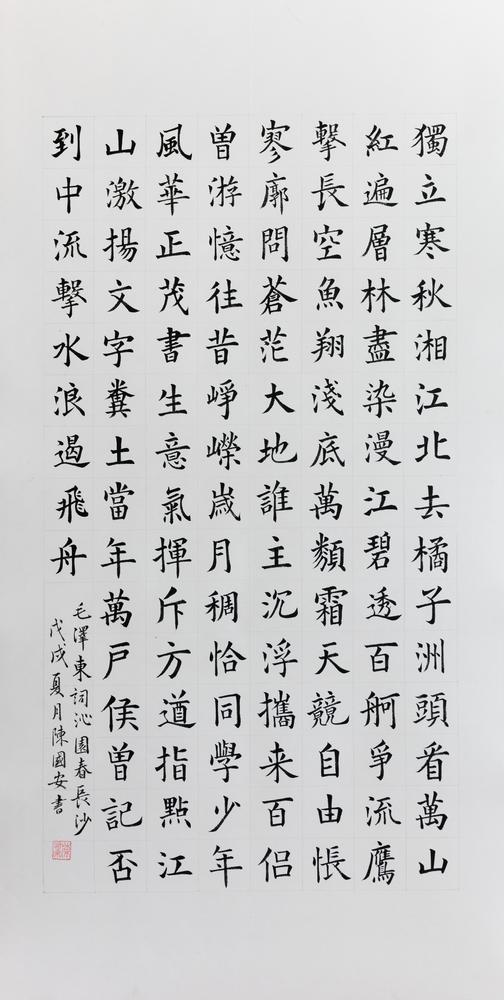 獨立寒秋湘江北去橘子洲頭看萬山
紅遍層林盡染漫江碧透百舸爭流鷹
擊長空魚翔淺底萬類霜天競自由悵
寥廓問蒼茫大地誰主沉浮攜来百侣
曾游憶往昔崢嶸歲月稠恰同學少年
風華正茂書生意氣揮斥方遒指點江
山激揚文字糞土當年萬戶侯曾記否
到中流擊水浪遏飛舟
毛澤東詞沁園春長沙
戊戌夏月陳國安書